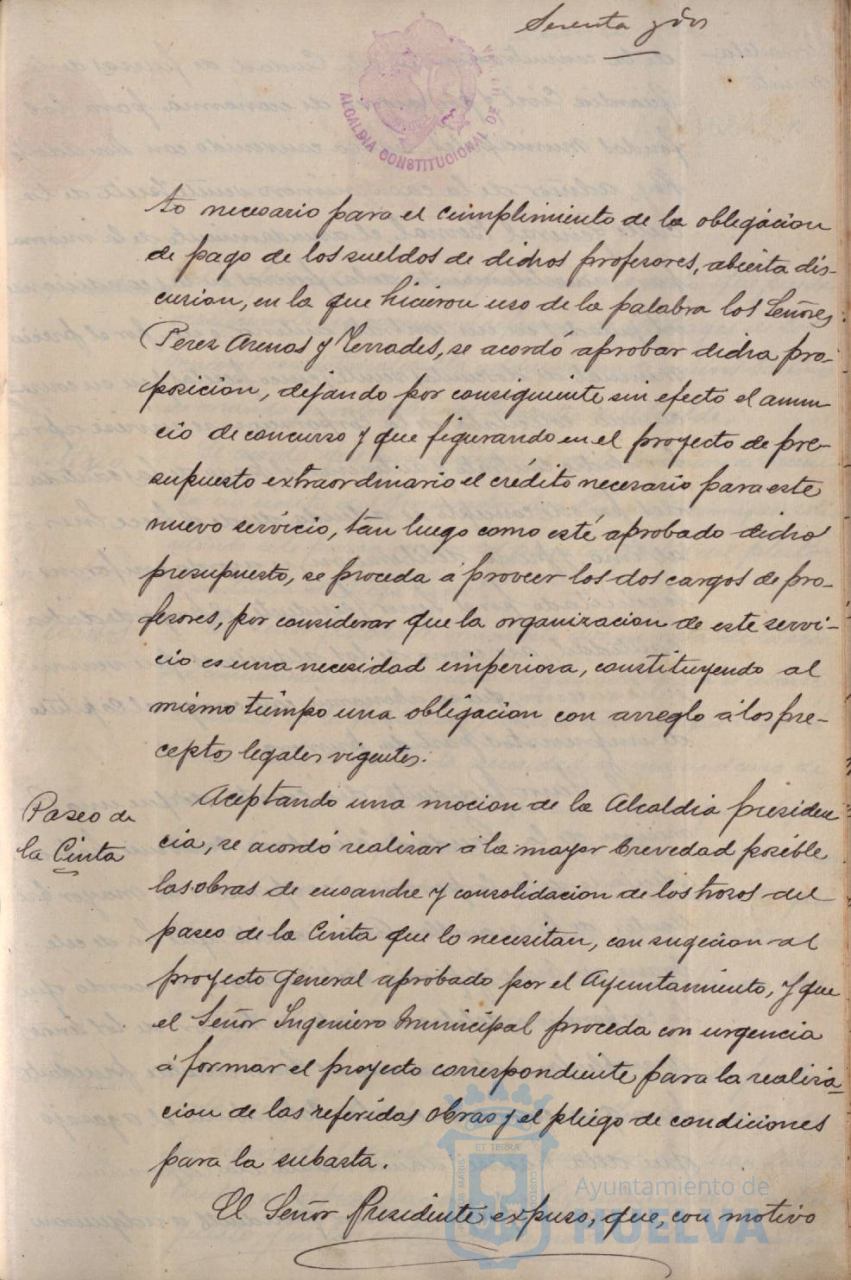 Sesenta y dos
ALCALDIA CONSTITUCIONAL DE HUELVA
to necesario para el cumplimiento de la obligacion
de pago de los sueldos de dichos profesores, abierta dis-
cusion, en la que hicieron uso de la palabra los Señores
Perez Arenas y Terrades, se acordó aprobar dicha pro-
posicion, dejando por consiguiente sin efecto el anun
cio de concurso y que figurando en el proyecto de pre-
supuesto extraordinario el crédito necesario para este
nuevo servicio, tan luego como esté aprobado dicho
presupuesto, se proceda á proveer los dos cargos de pro-
fesores, por considerar que la organizacion de este servi-
cio es una necesidad imperiosa, constituyendo al
mismo tiempo una obligacion con arreglo á los pre-
ceptos legales vigentes.
Paseo de
la Cinta
Aceptando una mocion de la Alcaldia presiden
cia, se acordó realizar á la mayor brevedad posible
las obras de ensanche y consolidacion de los trozos del
paseo de la Cinta que lo necesitan, con sugecion al
proyecto general aprobado por el Ayuntamiento, y que
el Señor Ingeniero Municipal proceda con urgencia
á formar el proyecto correspondiente para la realiza-
cion de las referidas obras y el pliego de condiciones
para la subasta.
El Señor Presidente expuso, que, con motivo
Ayuntamiento de
HUELVA